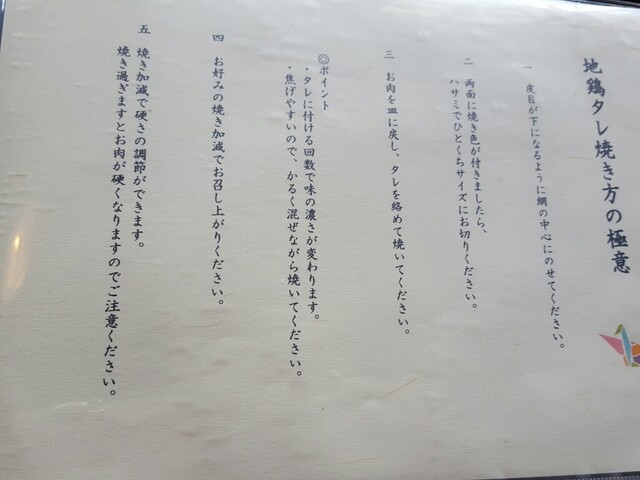 地鶏タレ焼き方の極意
一 皮目が下になるように網の中心にのせてください。
二 両面に焼き色が付きましたら、
ハサミでひとくちサイズにお切りください。
三 お肉を皿に戻し、タレを絡めて焼いてください。
◎ポイント
・タレに付ける回数で味の濃さが変わります。
・焦げやすいので、かるく混ぜながら焼いてください。
四 お好みの焼き加減でお召し上がりください。
五 焼き加減で硬さの調節ができます。
焼き過ぎますとお肉が硬くなりますのでご注意ください。